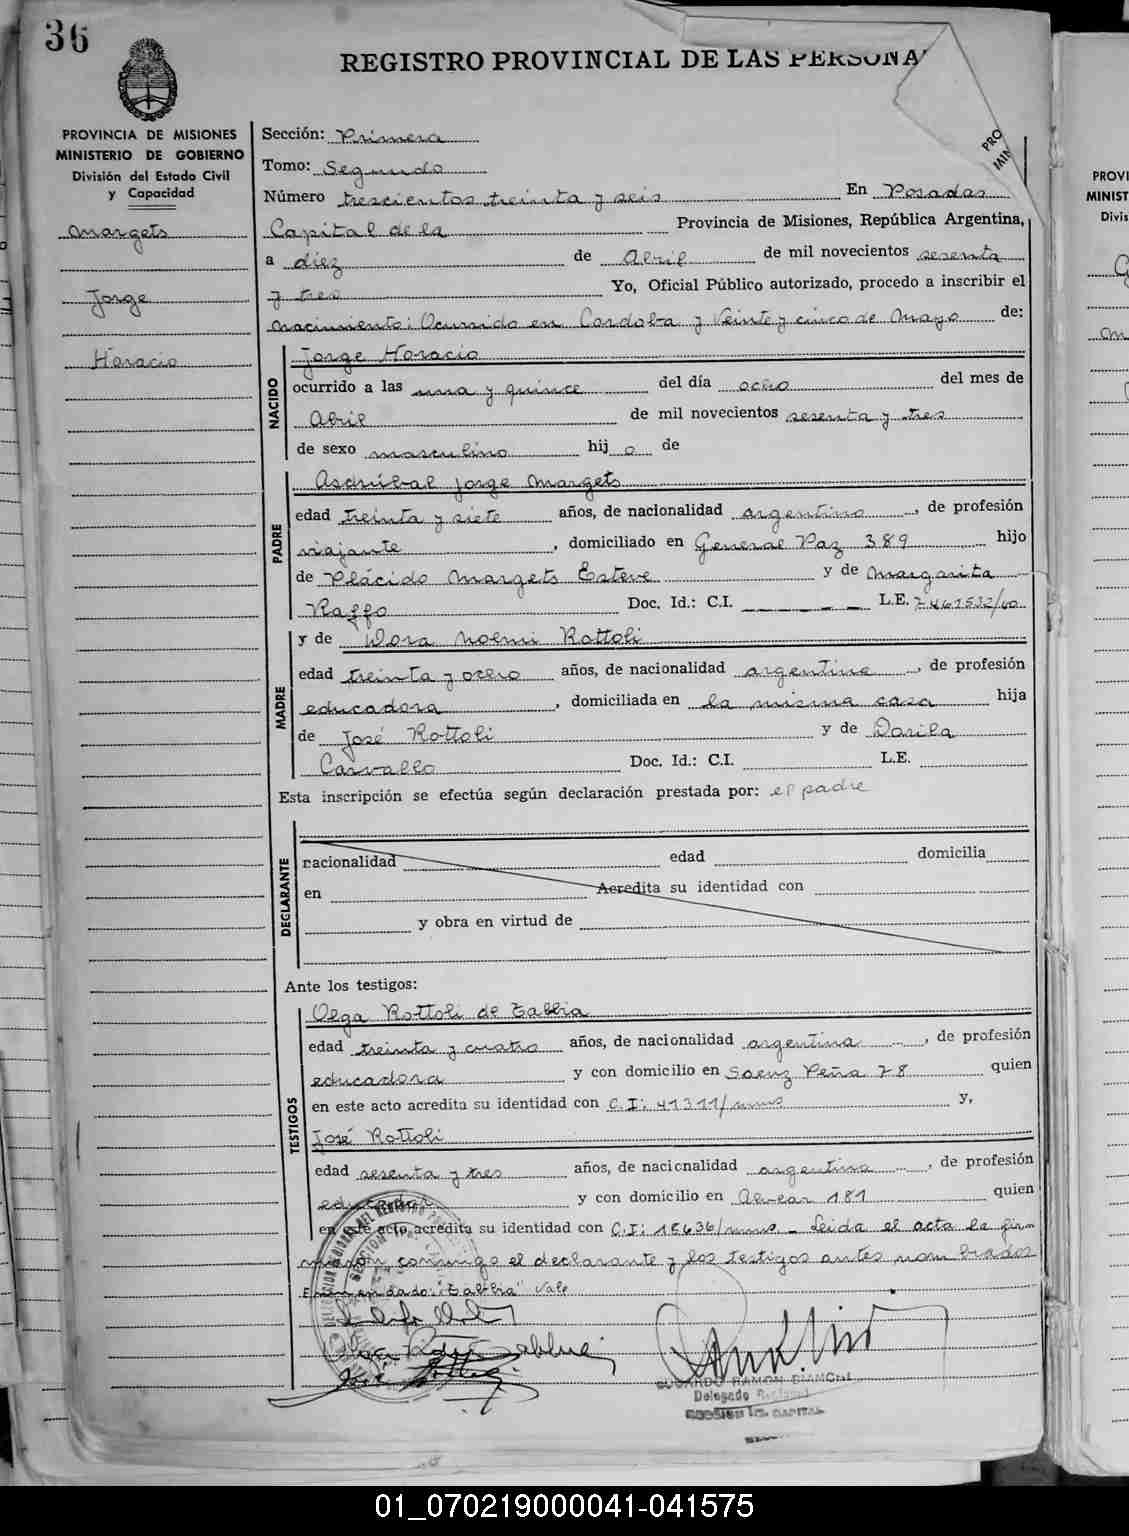 36
REGISTRO PROVINCIAL DE LAS PERSONA
PRO
MIN
PROVINCIA DE MISIONES
MINISTERIO DE GOBIERNO
División del Estado Civil
y Capacidad
Margets
Jorge
Horacio
Sección: Primera
Tomo: Segundo
Número trescientos treinta y seis En Posadas
Capital de la Provincia de Misiones, República Argentina,
a diez de Abril de mil novecientos sesenta
y tres Yo, Oficial Público autorizado, procedo a inscribir el
nacimiento: Ocurrido en Cordoba y Veinte y cinco de Mayo de:
NACIDO
Jorge Horacio
ocurrido a las una y quince del día ocho del mes de
Abril de mil novecientos sesenta y tres
de sexo masculino hijo de
PADRE
Asdrúbal Jorge Margets
edad treinta y siete años, de nacionalidad argentino, de profesión
viajante, domiciliado en General Paz 389 hijo
de Plácido Margets Esteve y de Margarita
Raffo Doc. Id.: C.I. L.E. 7461532/60
MADRE
y de Dora Noemi Rottoli
edad treinta y ocho años, de nacionalidad argentina, de profesión
educadora, domiciliada en la misma casa hija
de José Rottoli y de Dorila
Carvallo Doc. Id.: C.I. L.E.
Esta inscripción se efectúa según declaración prestada por: el padre
DECLARANTE
nacionalidad edad domicilia
en Acredita su identidad con
y obra en virtud de
Ante los testigos:
TESTIGOS
Olga Rottoli de Zabbia
edad treinta y cuatro años, de nacionalidad argentina, de profesión
educadora y con domicilio en Saenz Peña 78 quien
en este acto acredita su identidad con C.I: 41311/mnes y,
José Rottoli
edad sesenta y tres años, de nacionalidad argentina, de profesión
educador y con domicilio en Alvear 181 quien
en este acto acredita su identidad con C.I: 15636/mnes. - Leida el acta la fir-
maron conmigo el declarante y los testigos antes nombrados
Enmendado: "Zabbia" Vale
EDUARDO RAMON BIANCHI
Delegado Regional
SECCION 1ª CAPITAL
PROVI
MINIST
Divis
01_070219000041-041575